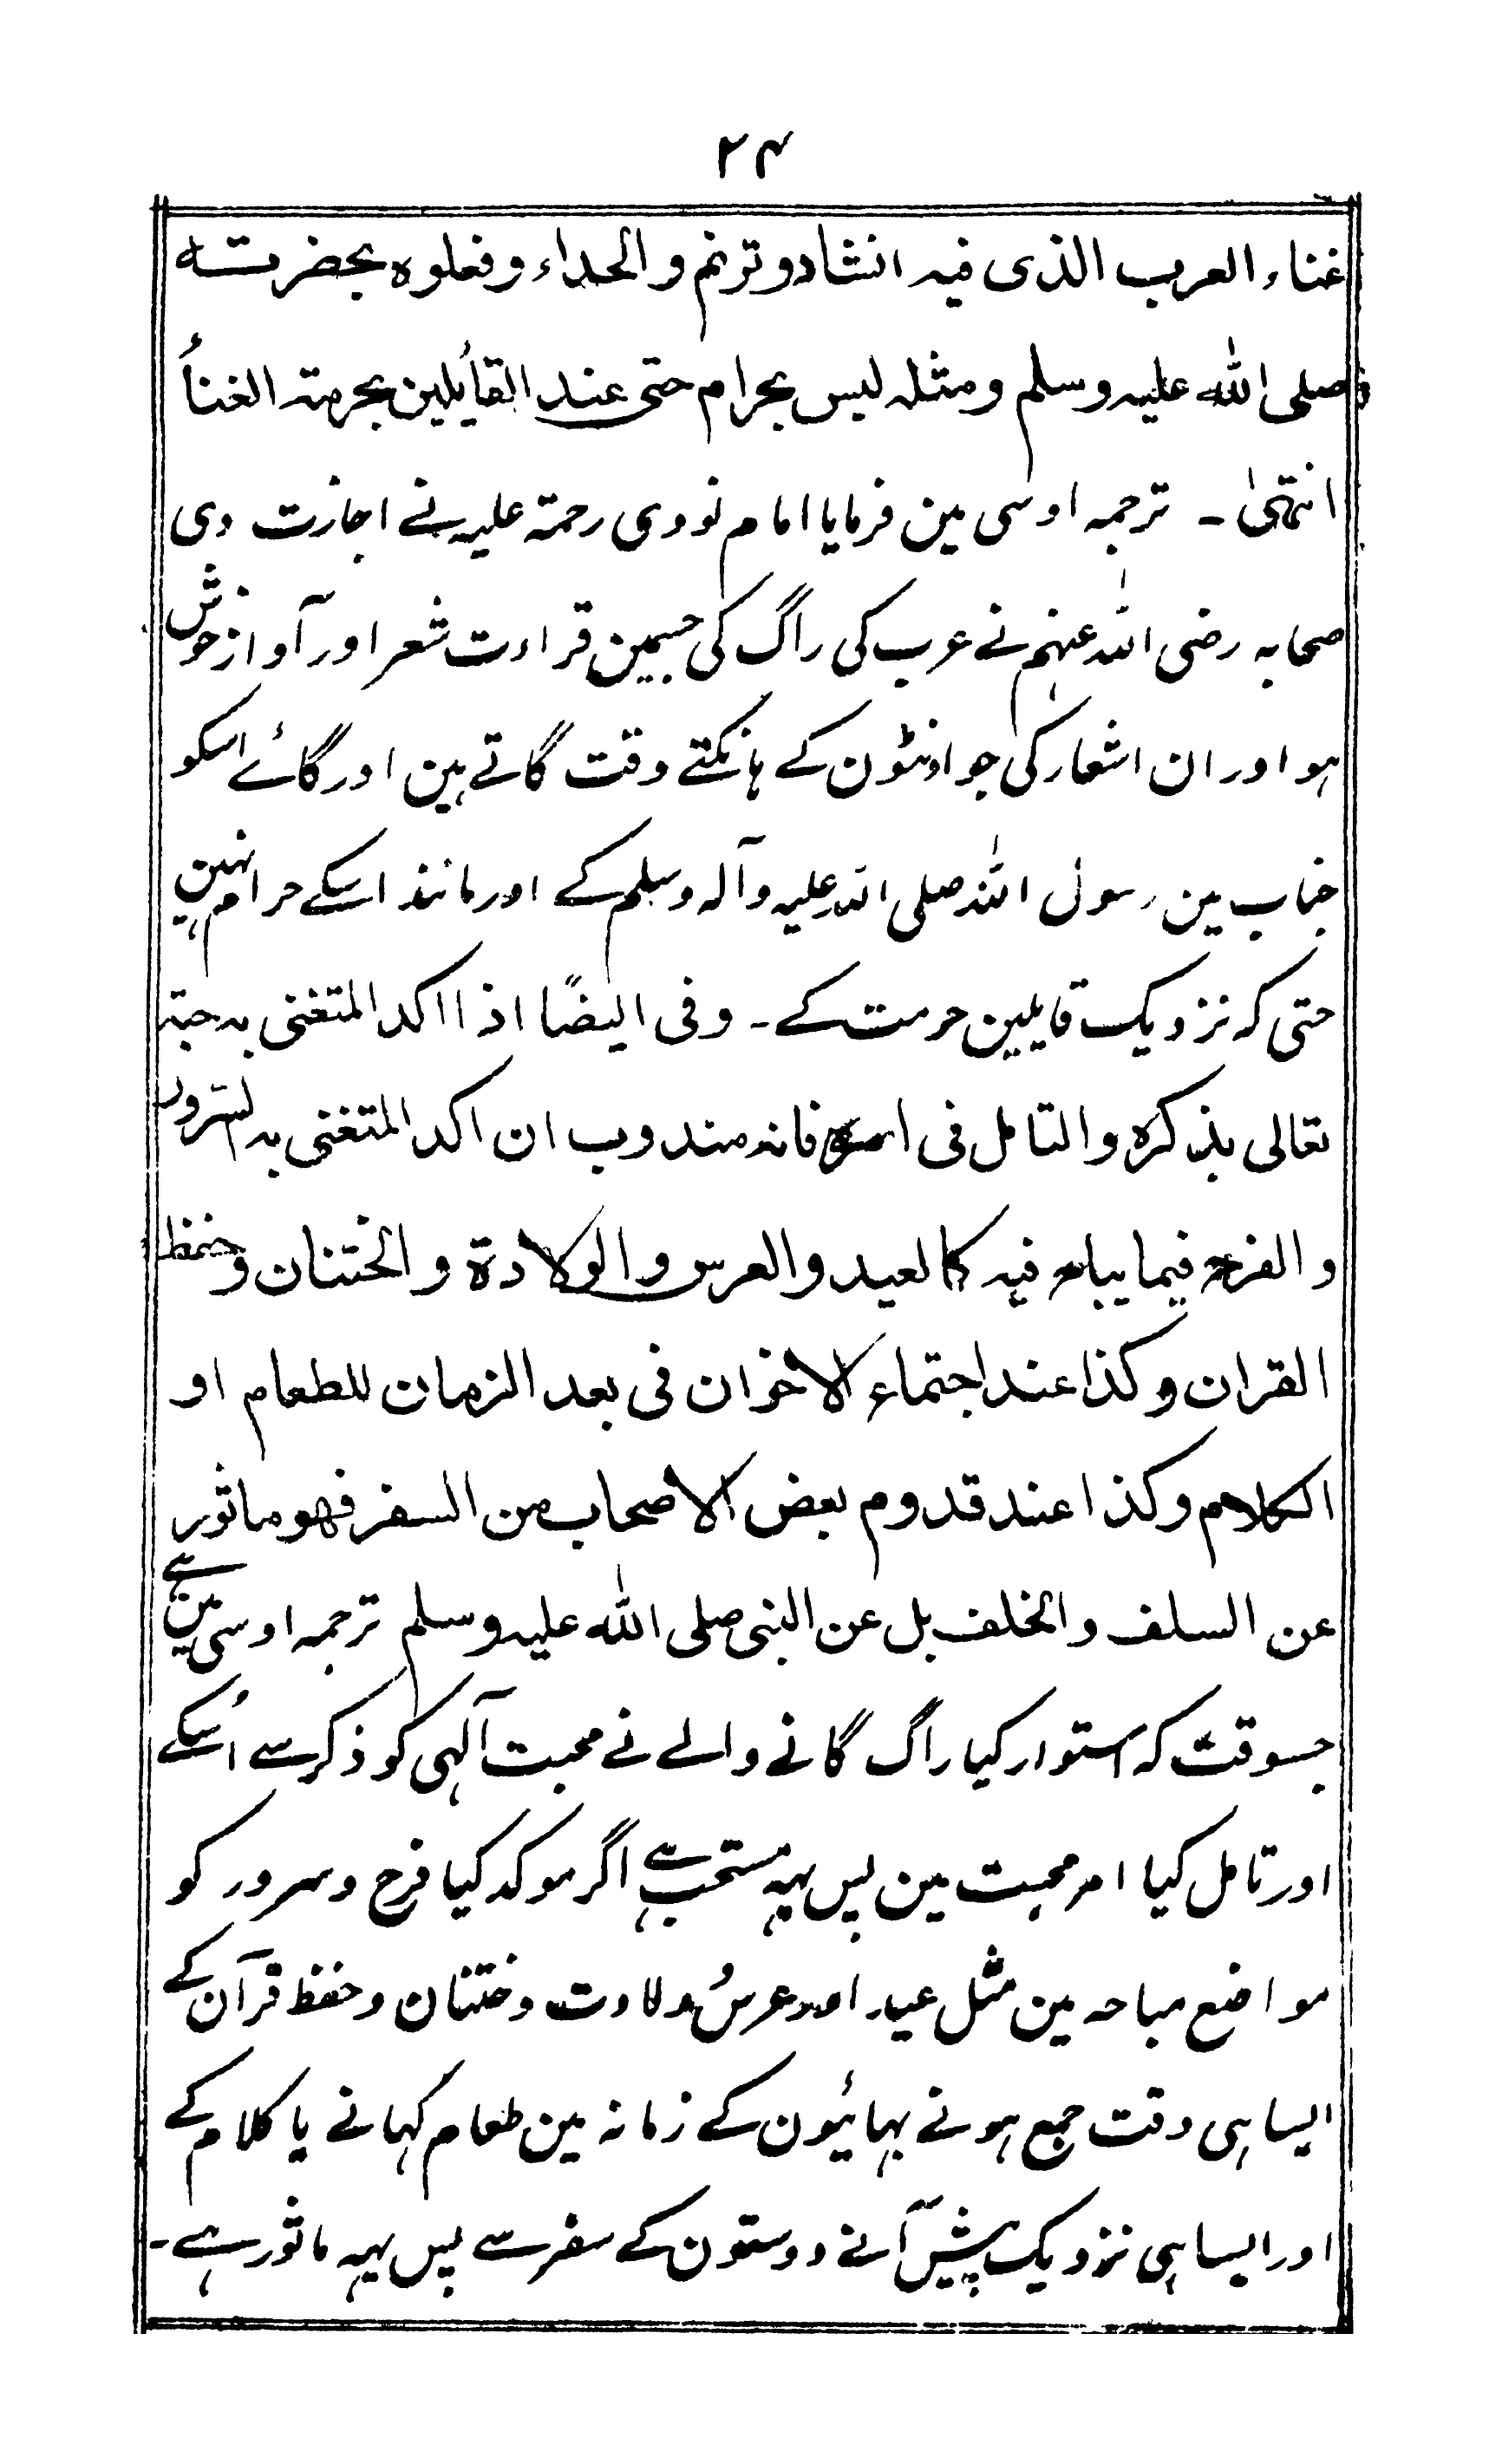 ۲۴
غناء العرب الذى فيه انشاد وترنم والحداء وفعلوه بحضرته
صلى الله عليه وسلم ومثله ليس بحرام حتى عند القائلين بحرمته الغناُء
انتہیٰ ـ ترجمہ اوسی مین فرمایا امام نووی رحمۃ علیہ نے اجازت دی
صحابہ رضی اللہ عنہم نے عرب کی راگ کی جسمین قراءت شعر اور آواز خوش
ہو اور ان اشعار کی جو اونٹون کے ہانکتے وقت گاتے ہین اور گائے اسکو
جناب مین رسول اللہ صلی اللہ علیہ وآلہ وسلم کے اور مانند اسکے حرام نہین
حتی کہ نزدیک قایلین حرمت کے ـ وفی ایضًا اذا اکد المتغنی به حبته
تعالى بذكره والتامل فى فانه مندوب ان اكد المتغنى به السّرور
والفرح فيما يباح فيه كالعيد والعرس والولادة والختنان وحفظ
القران وكذا عند اجتماع الاخوان فى بعد الزمان للطعام او
الكلام وكذا عند قدوم بعض الاصحاب من السفر فهو ماثور
عن السلف والخلف بل عن النبى صلى الله عليه وسلم ترجمہ اوسی مین ہے
جسوقت کہ استوار کیا راگ گانے والے نے محبت آلہی کو ذکر سے اُسکے
اور تامل کیا امر محبت مین پس یہہ مستحب ہے اگر موکد کیا فرح وسرور کو
مواضع مباحہ مین مثل عید اور عرسُ ولادت وختنان وحفظ قرآن کے
ایسا ہی وقت جمع ہونے بہائیون کے زمانہ مین طعام کہانے یا کلام کے
اور ایسا ہی نزدیک پیش آنے دوستون کے سفر سے پس یہہ ماثور ہے ـ